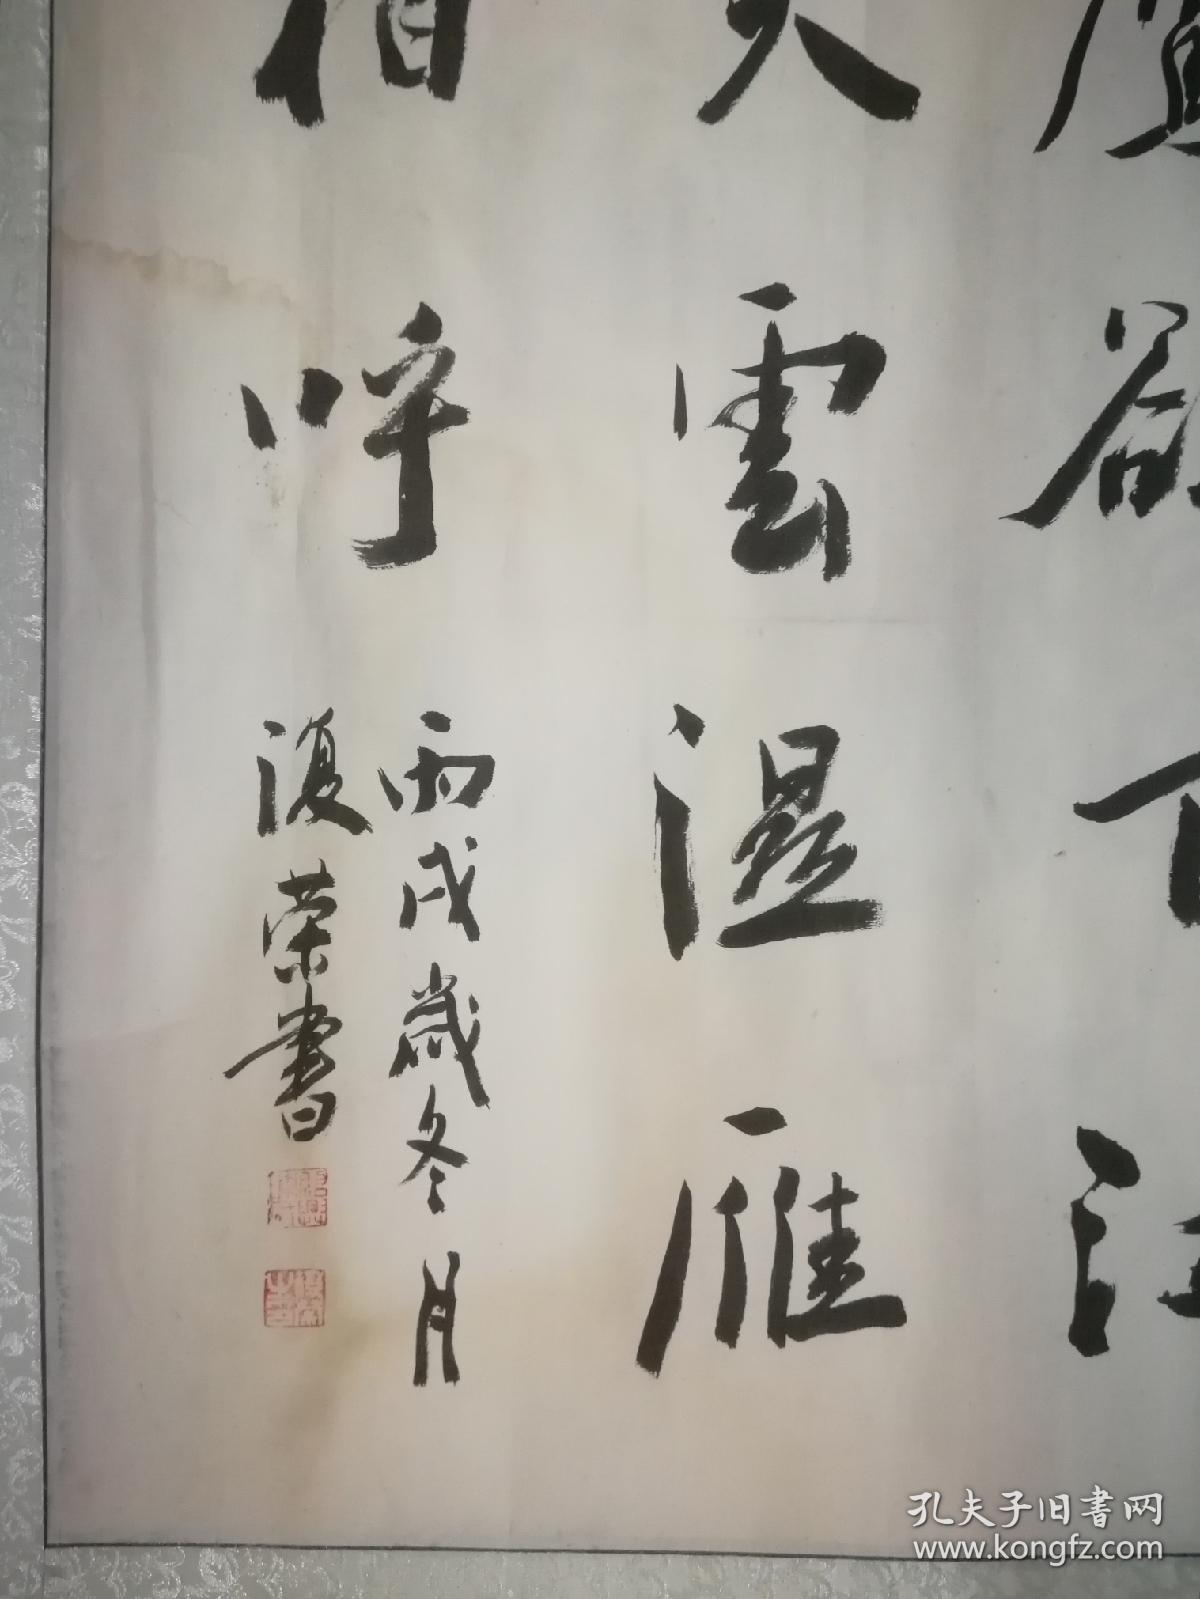 欲下江
天雲濕雁
相呼
丙戌歲冬月
復荣書
孔夫子旧書网
www.kongfz.com